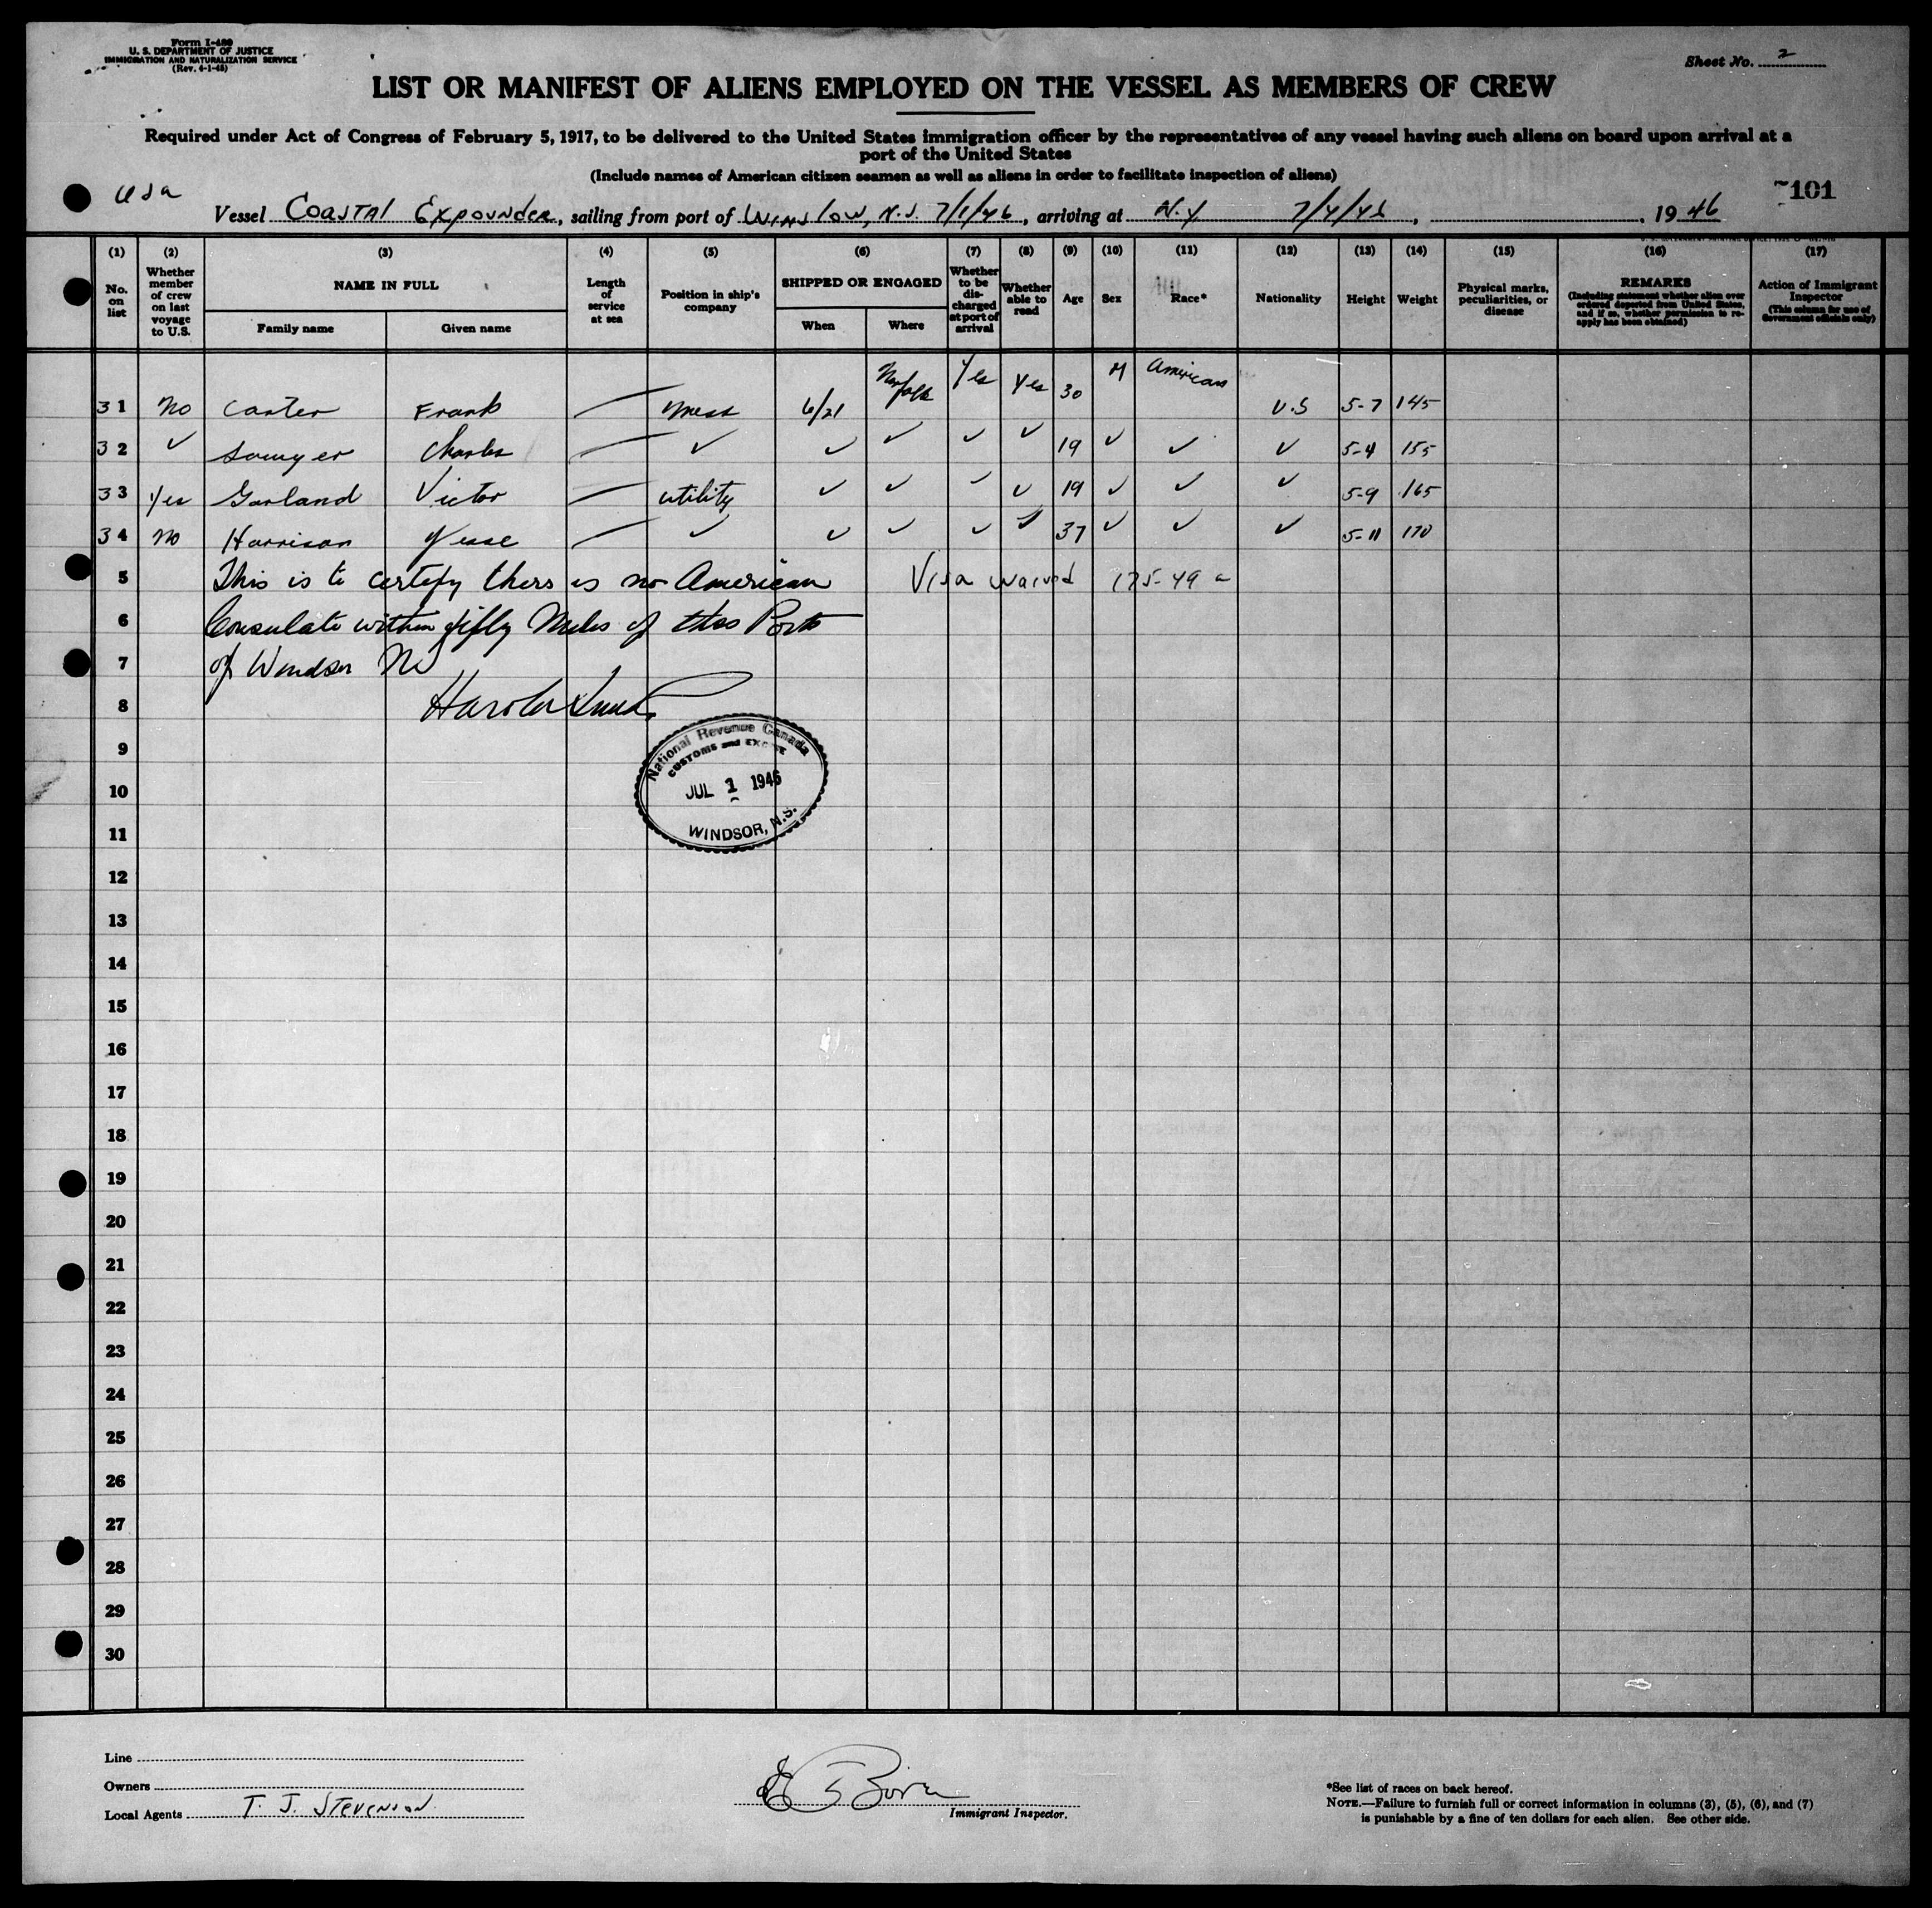 Form I-480
U. S. DEPARTMENT OF JUSTICE
IMMIGRATION AND NATURALIZATION SERVICE
(Rev. 4-1-45)
Sheet No. 2
LIST OR MANIFEST OF ALIENS EMPLOYED ON THE VESSEL AS MEMBERS OF CREW
Required under Act of Congress of February 5, 1917, to be delivered to the United States immigration officer by the representatives of any vessel having such aliens on board upon arrival at a
port of the United States
(Include names of American citizen seamen as well as aliens in order to facilitate inspection of aliens)
USA
7101
Vessel Coastal Expounder, sailing from port of Winslow, N.S. 7/1/46, arriving at N.Y. 7/4/46, 1946
(1) (2) (3) (4) (5) (6) (7) (8) (9) (10) (11) (12) (13) (14) (15) (16) (17)
No. on list
Whether member of crew on last voyage to U.S.
NAME IN FULL
Family name Given name
Length of service at sea
Position in ship's company
SHIPPED OR ENGAGED
When Where
Whether to be discharged at port of arrival
Whether able to read
Age
Sex
Race*
Nationality
Height
Weight
Physical marks, peculiarities, or disease
REMARKS
(Including statement whether alien ever ordered deported from United States, and if so, whether permission to reapply has been obtained)
Action of Immigrant Inspector
(This column for use of Government officials only)
31 No Carter Frank — mess 6/21 Norfolk Yes Yes 30 M American U.S 5-7 145
32 ✓ Sawyer Charles — ✓ ✓ ✓ ✓ ✓ 19 ✓ ✓ ✓ 5-4 155
33 Yes Garland Victor — utility ✓ ✓ ✓ ✓ 19 ✓ ✓ ✓ 5-9 165
34 No Harrison Jesse — ✓ ✓ ✓ ✓ ✓ 37 ✓ ✓ ✓ 5-11 170
5 This is to certify there is no American Visa waived 175-49 a
6 Consulate within fifty Miles of this Port
7 of Windsor NS
8 Harold
9
National Revenue Canada
CUSTOMS and EXCISE
10
JUL 1946
11
WINDSOR, N.S.
12
13
14
15
16
17
18
19
20
21
22
23
24
25
26
27
28
29
30
Line
Owners
Local Agents T. J. Stevenson
Immigrant Inspector.
*See list of races on back hereof.
NOTE.—Failure to furnish full or correct information in columns (3), (5), (6), and (7)
is punishable by a fine of ten dollars for each alien. See other side.